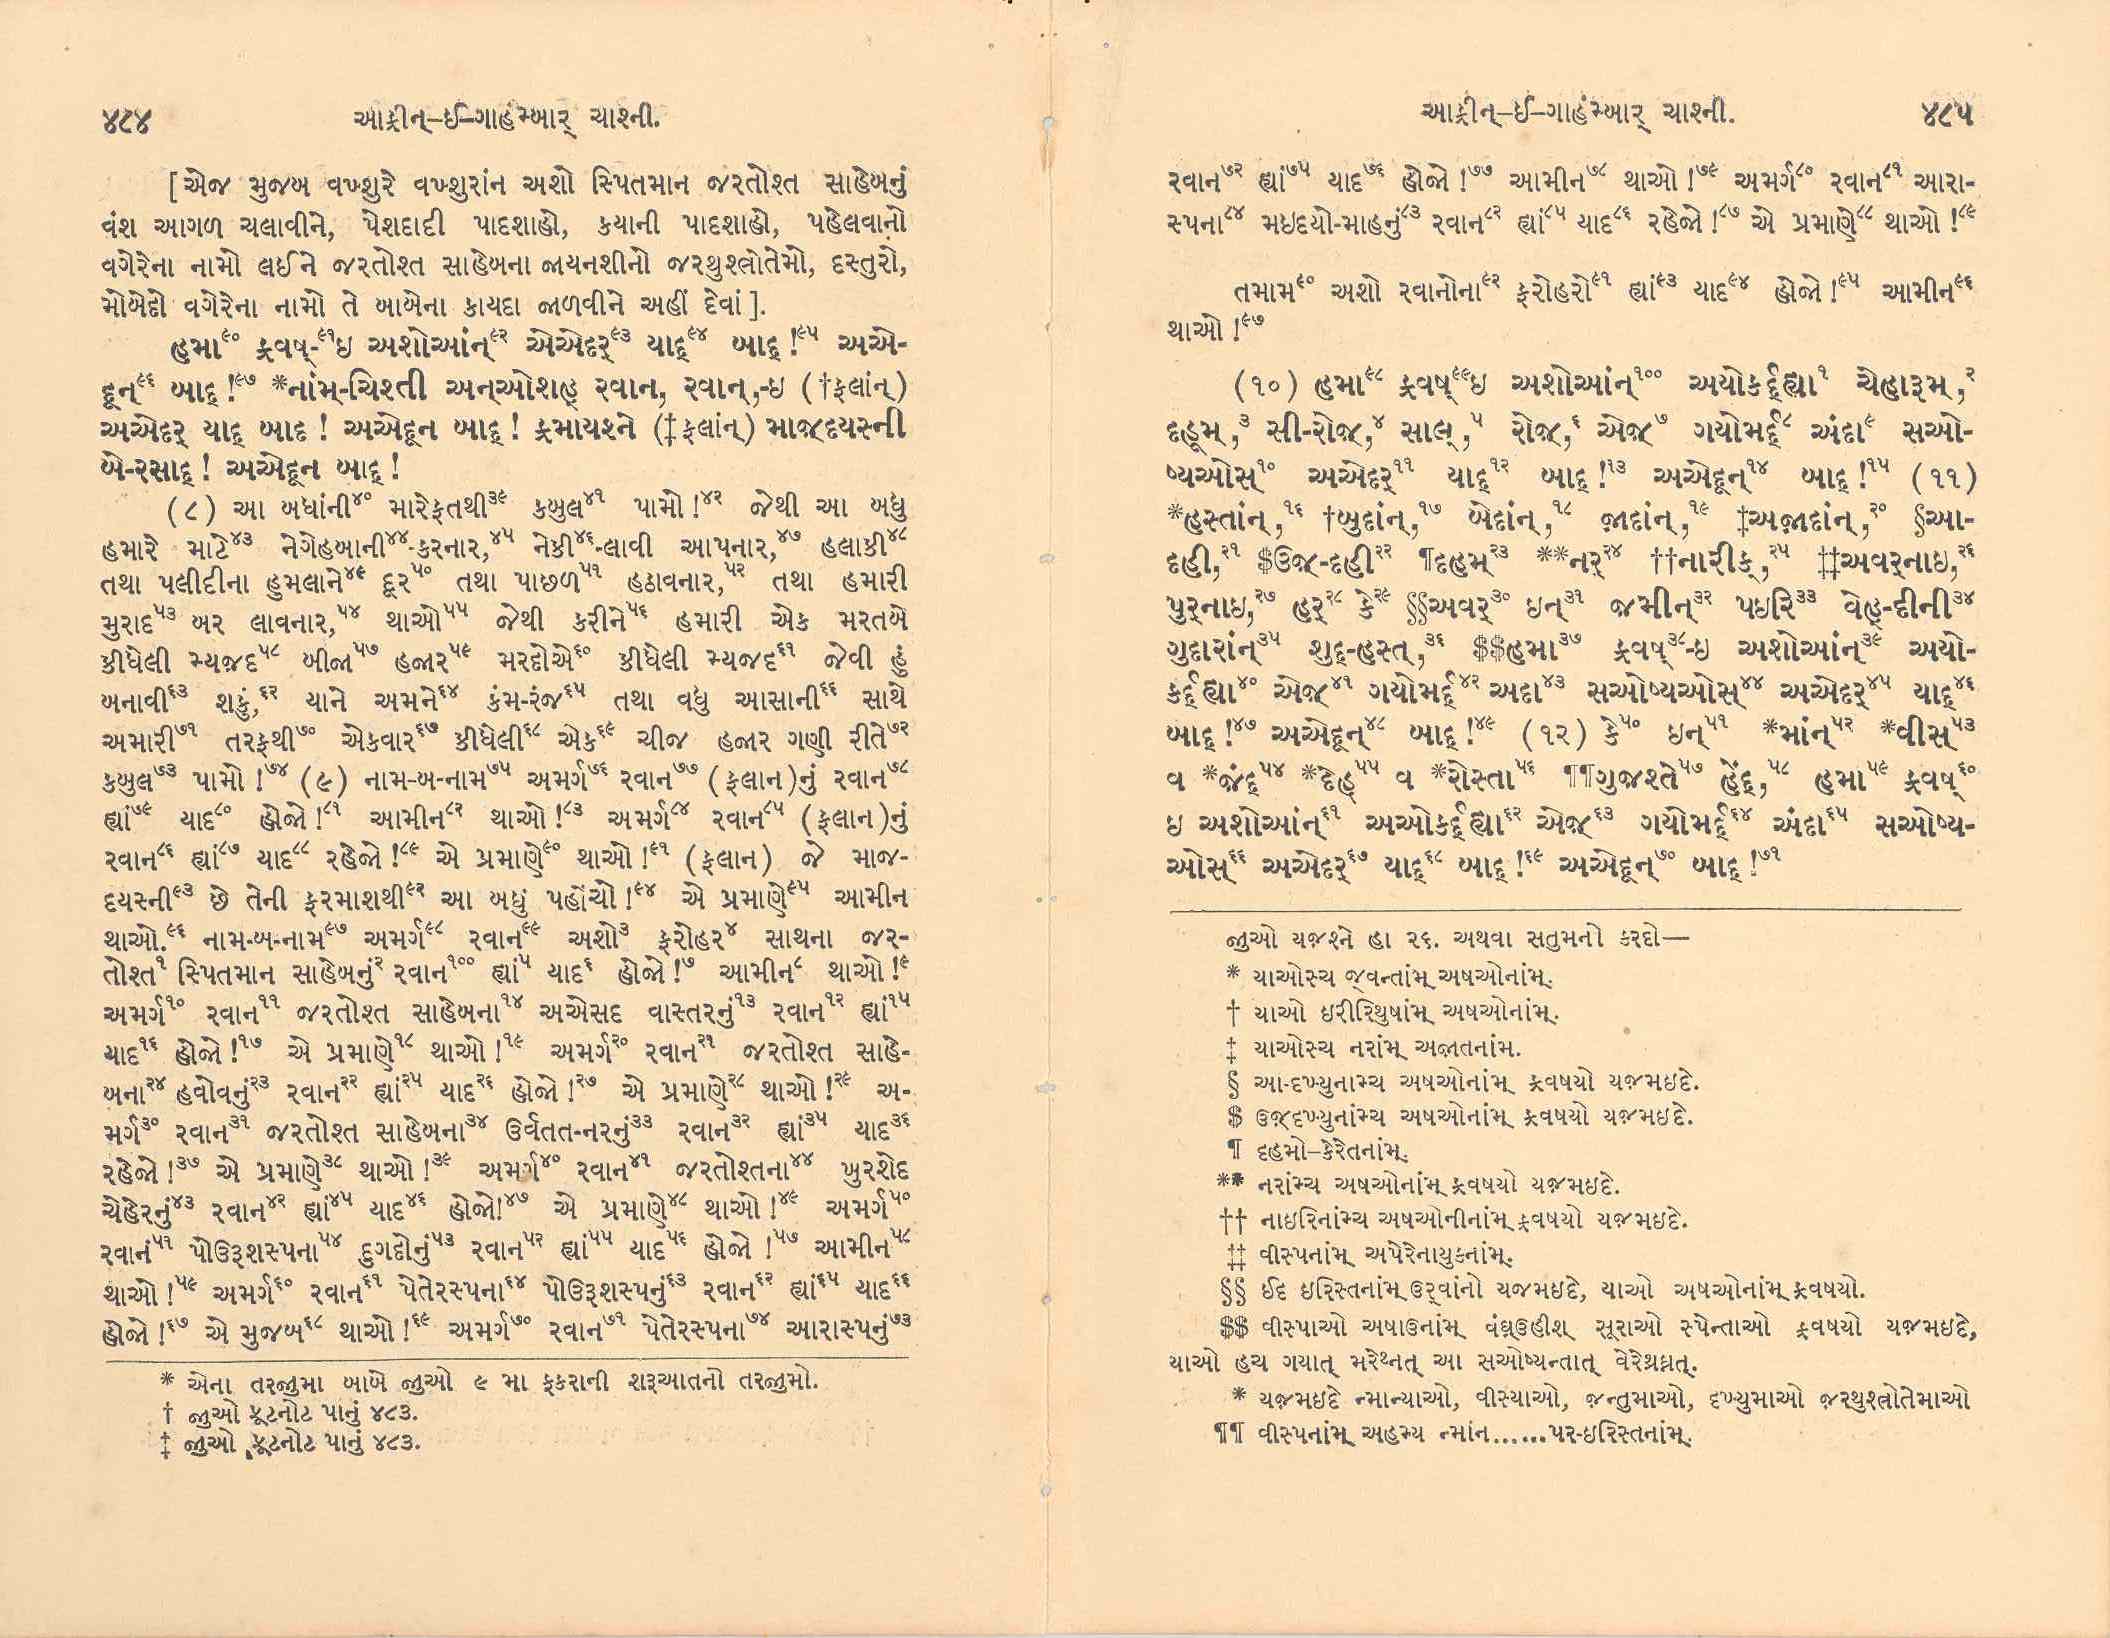 ૪૮૪ આફ્રીન્-ઈ-ગાહંમ્બાર્ ચાશ્ની.
[એજ મુજબ વખ્શુરે વખ્શુરાંન અશો સ્પિતમાન જરતોશ્ત સાહેબનું
વંશ આગળ ચલાવીને, પેશદાદી પાદશાહો, કયાની પાદશાહો, પહેલવાનો
વગેરેના નામો લઈને જરતોશ્ત સાહેબના જાયનશીનો જરથુશ્ત્રોતેમો, દસ્તુરો,
મોબેદો વગેરેના નામો તે બાબેના કાયદા જાળવીને અહીં દેવાં].
હમા૯૦ ફ્રવષ્-૯૧ઇ અશોઆંન્૯૨ એએદર્૯૩ યાદ્૯૪ બાદ્!૯૫ અએ-
દૂન્૯૬ બાદ્!૯૭ *નાંમ્-ચિશ્તી અન્ઓશહ્ રવાન, રવાન્,-ઇ (†ફલાંન્)
અએદર્ યાદ્ બાદ! અએદૂન બાદ્! ફ્રમાયશ્ને (‡ફલાંન્) માજ઼્દયસ્ની
બે-રસાદ્! અએદૂન બાદ્!
(૮) આ બધાંની૪૦ મારેફતથી૩૯ કબુલ૪૧ પામો!૪૨ જેથી આ બધુ
હમારે માટે૪૩ નેગેહબાની૪૪-કરનાર,૪૫ નેકી૪૬-લાવી આપનાર,૪૭ હલાકી૪૮
તથા પલીદીના હુમલાને૪૯ દૂર૫૦ તથા પાછળ૫૧ હઠાવનાર,૫૨ તથા હમારી
મુરાદ૫૩ બર લાવનાર,૫૪ થાઓ૫૫ જેથી કરીને૫૬ હમારી એક મરતબે
કીધેલી મ્યજ઼દ૫૮ બીજા૫૭ હજાર૫૯ મરદોએ૬૦ કીધેલી મ્યજદ૬૧ જેવી હું
બનાવી૬૩ શકું,૬૨ યાને અમને૬૪ કંમ-રંજ૬૫ તથા વધુ આસાની૬૬ સાથે
અમારી૭૧ તરફથી૭૦ એકવાર૬૭ કીધેલી૬૮ એક૬૯ ચીજ હજાર ગણી રીતે૭૨
કબુલ૭૩ પામો!૭૪ (૯) નામ-બ-નામ૭૫ અમર્ગ૭૬ રવાન૭૭ (ફલાન)નું રવાન૭૮
હ્યાં૭૯ યાદ૮૦ હોજો!૮૧ આમીન૮૨ થાઓ!૮૩ અમર્ગ૮૪ રવાન૮૫ (ફલાન)નું
રવાન૮૬ હ્યાં૮૭ યાદ૮૮ રહેજો!૮૯ એ પ્રમાણે૯૦ થાઓ!૯૧ (ફલાન) જે માજ-
દયસ્ની૯૩ છે તેની ફરમાશથી૯૨ આ બધું પહોંચો!૯૪ એ પ્રમાણે૯૫ આમીન
થાઓ.૯૬ નામ-બ-નામ૯૭ અમર્ગ૯૮ રવાન૯૯ અશો૩ ફરોહર૪ સાથના જર-
તોશ્ત૧ સ્પિતમાન સાહેબનું૨ રવાન૧૦૦ હ્યાં૫ યાદ૬ હોજો!૭ આમીન૮ થાઓ!૯
અમર્ગ૧૦ રવાન૧૧ જરતોશ્ત સાહેબના૧૪ અએસદ વાસ્તરનું૧૩ રવાન૧૨ હ્યાં૧૫
યાદ૧૬ હોજો!૧૭ એ પ્રમાણે૧૮ થાઓ!૧૯ અમર્ગ૨૦ રવાન૨૧ જરતોશ્ત સાહે-
બના૨૪ હવોવનું૨૩ રવાન૨૨ હ્યાં૨૫ યાદ૨૬ હોજો!૨૭ એ પ્રમાણે૨૮ થાઓ!૨૯ અ-
મર્ગ૩૦ રવાન૩૧ જરતોશ્ત સાહેબના૩૪ ઉર્વતત-નરનું૩૩ રવાન૩૨ હ્યાં૩૫ યાદ૩૬
રહેજો!૩૭ એ પ્રમાણે૩૮ થાઓ!૩૯ અમર્ગ૪૦ રવાન૪૧ જરતોશ્તના૪૪ ખુરશેદ
ચેહેરનું૪૩ રવાન૪૨ હ્યાં૪૫ યાદ૪૬ હોજો!૪૭ એ પ્રમાણે૪૮ થાઓ!૪૯ અમર્ગ૫૦
રવાનં૫૧ પોઉરૂશસ્પના૫૪ દુગદોનું૫૩ રવાન૫૨ હ્યાં૫૫ યાદ૫૬ હોજો!૫૭ આમીન૫૮
થાઓ!૫૯ અમર્ગ૬૦ રવાન૬૧ પેતેરસ્પના૬૪ પોઉરૂશસ્પનું૬૩ રવાન૬૨ હ્યાં૬૫ યાદ૬૬
હોજો!૬૭ એ મુજબ૬૮ થાઓ!૬૯ અમર્ગ૭૦ રવાન૭૧ પેતેરસ્પના૭૪ આરાસ્પનું૭૩
* એના તરજુમા બાબે જુઓ ૯ મા ફકરાની શરૂઆતનો તરજુમો.
† જુઓ ફૂટનોટ પાનું ૪૮૩.
‡ જુઓ ફૂટનોટ પાનું ૪૮૩.
આફ્રીન્-ઈ-ગાહંમ્બાર્ ચાશ્ની. ૪૮૫
રવાન૭૨ હ્યાં૭૫ યાદ૭૬ હોજો!૭૭ આમીન૭૮ થાઓ!૭૯ અમર્ગ૮૦ રવાન૮૧ આરા-
સ્પના૮૪ મઇદયો-માહનું૮૩ રવાન૮૨ હ્યાં૮૫ યાદ૮૬ રહેજો!૮૭ એ પ્રમાણે૮૮ થાઓ!૮૯
તમામ૯૦ અશો રવાનોના૯૨ ફરોહરો૯૧ હ્યાં૯૩ યાદ૯૪ હોજો!૯૫ આમીન૯૬
થાઓ!૯૭
(૧૦) હમા૯૮ ફ્રવષ્૯૯ઇ અશોઆંન્૧૦૦ અયોકર્દ્હ્યા૧ ચેહારૂમ્,૨
દહૂમ્,૩ સી-રોજ઼,૪ સાલ્,૫ રોજ઼,૬ એજ઼૭ ગયોમર્દ્૮ અંદા૯ સઓ-
ષ્યઓસ્૧૦ અએદર્૧૧ યાદ્૧૨ બાદ્!૧૩ અએદૂન્૧૪ બાદ્!૧૫ (૧૧)
*હસ્તાંન્,૧૬ †બુદાંન્,૧૭ બેદાંન્,૧૮ જ઼ાદાંન્,૧૯ ‡અજ઼ાદાંન્,૨૦ §આ-
દહી,૨૧ $ઉજ઼-દહી૨૨ ¶દહમ્૨૩ **નર્૨૪ ††નારીક્,૨૫ ‡‡અવર્નાઇ,૨૬
પુર્નાઇ,૨૭ હર્૨૮ કે૨૯ §§અવર્૩૦ ઇન્૩૧ જમીન્૩૨ પઇરિ૩૩ વેહ્-દીની૩૪
ગુદારાંન્૩૫ શુદ્-હસ્ત્,૩૬ $$હમા૩૭ ફ્રવષ્૩૮-ઇ અશોઆંન્૩૯ અયો-
કર્દ્હ્યા૪૦ એજ઼૪૧ ગયોમર્દ્૪૨ અદા૪૩ સઓષ્યઓસ્૪૪ અએદર્૪૫ યાદ્૪૬
બાદ્!૪૭ અએદૂન્૪૮ બાદ્!૪૯ (૧૨) કે૫૦ ઇન્૫૧ *માંન્૫૨ *વીસ્૫૩
વ *જ઼ંદ્૫૪ *દેહ્૫૫ વ *રોસ્તા૫૬ ¶¶ગુજશ્તે૫૭ હેંદ્,૫૮ હમા૫૯ ફ્રવષ્૬૦
ઇ અશોઆંન્૬૧ અઓકર્દ્હ્યા૬૨ એજ઼૬૩ ગયોમર્દ્૬૪ અંદા૬૫ સઓષ્ય-
ઓસ્૬૬ અએદર્૬૭ યાદ્૬૮ બાદ્!૬૯ અએદૂન્૭૦ બાદ્!૭૧
જુઓ યજ઼શ્ને હા ૨૬. અથવા સતુમનો કરદો—
* યાઓસ્ચ જ્વન્તાંમ્ અષઓનાંમ્.
† યાઓ ઇરીરિથુષાંમ્ અષઓનાંમ્.
‡ યાઓસ્ચ નરાંમ્ અજ઼ાતનાંમ.
§ આ-દખ્યુનામ્ચ અષઓનાંમ્ ફ્રવષયો યજ઼મઇદે.
$ ઉજ઼્દખ્યુનાંમ્ચ અષઓનાંમ્ ફ્રવષયો યજ઼મઇદે.
¶ દહમો-કેરેતનાંમ્.
** નરાંમ્ચ અષઓનાંમ્ ફ્રવષયો યજ઼મઇદે.
†† નાઇરિનાંમ્ચ અષઓનીનાંમ્ ફ્રવષયો યજ઼મઇદે.
‡‡ વીસ્પનાંમ્ અપેરેનાયુકનાંમ્.
§§ ઈદ ઇરિસ્તનાંમ્ ઉર્વાંનો યજમઇદે, યાઓ અષઓનાંમ્ ફ્રવષયો.
$$ વીસ્પાઓ અષાઉનાંમ્ વંઘ્ઉહીશ્ સૂરાઓ સ્પેન્તાઓ ફ્રવષયો યજ઼મઇદે,
યાઓ હચ ગયાત્ મરેથ્નત્ આ સઓષ્યન્તાત્ વેરેથ્રઘ્નત્.
* યજ઼મઇદે ન્માન્યાઓ, વીસ્યાઓ, જ઼ન્તુમાઓ, દખ્યુમાઓ જ઼રથુશ્ત્રોતેમાઓ
¶¶ વીસ્પનાંમ્ અહમ્ય ન્માંન......પર-ઇરિસ્તનાંમ્.